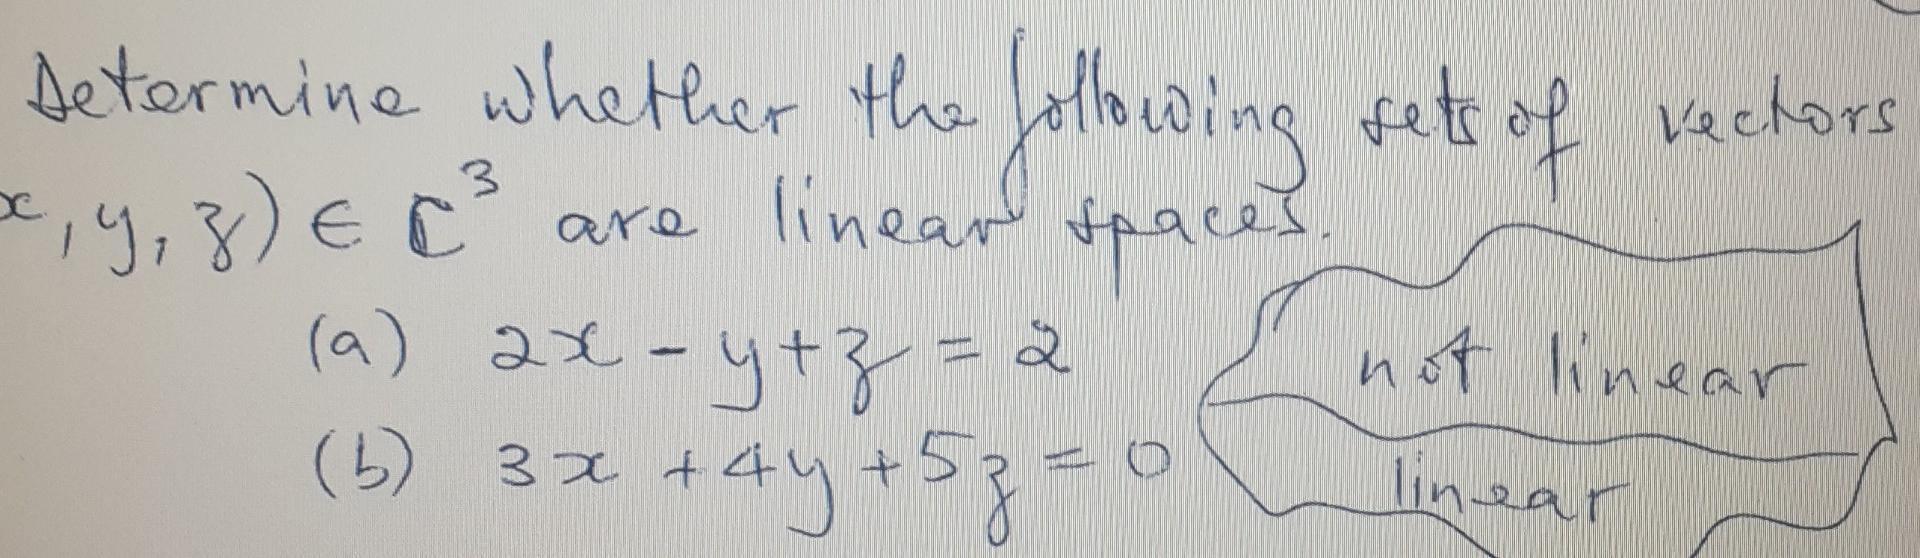 Determine whether the following sets of vectors
x, y, z) ∈ ℂ³ are linear spaces.
(a) 2x - y + z = 2
not linear
(b) 3x + 4y + 5z = 0
linear